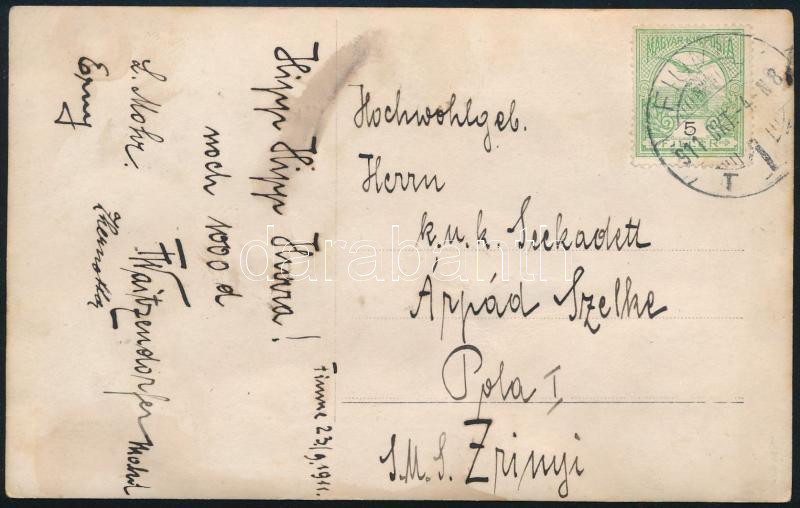 Hipp Hipp Hurra!
noch 1000 d
L. Mohr.
Waitzendorfer
Fiume 23/9 1911.
Hochwohlgeb.
Herrn
k.u.k. Seekadett
Árpád Szelke
Pola I
S.M.S. Zrinyi
MAGYAR KIR. POSTA
5
FILLÉR
FIUME
911 OKT
T
darabanth